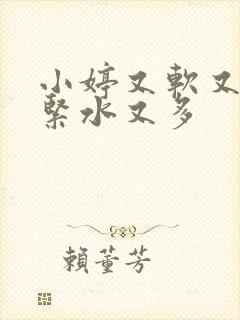 小婷又軟又
緊水又多
賴董芳